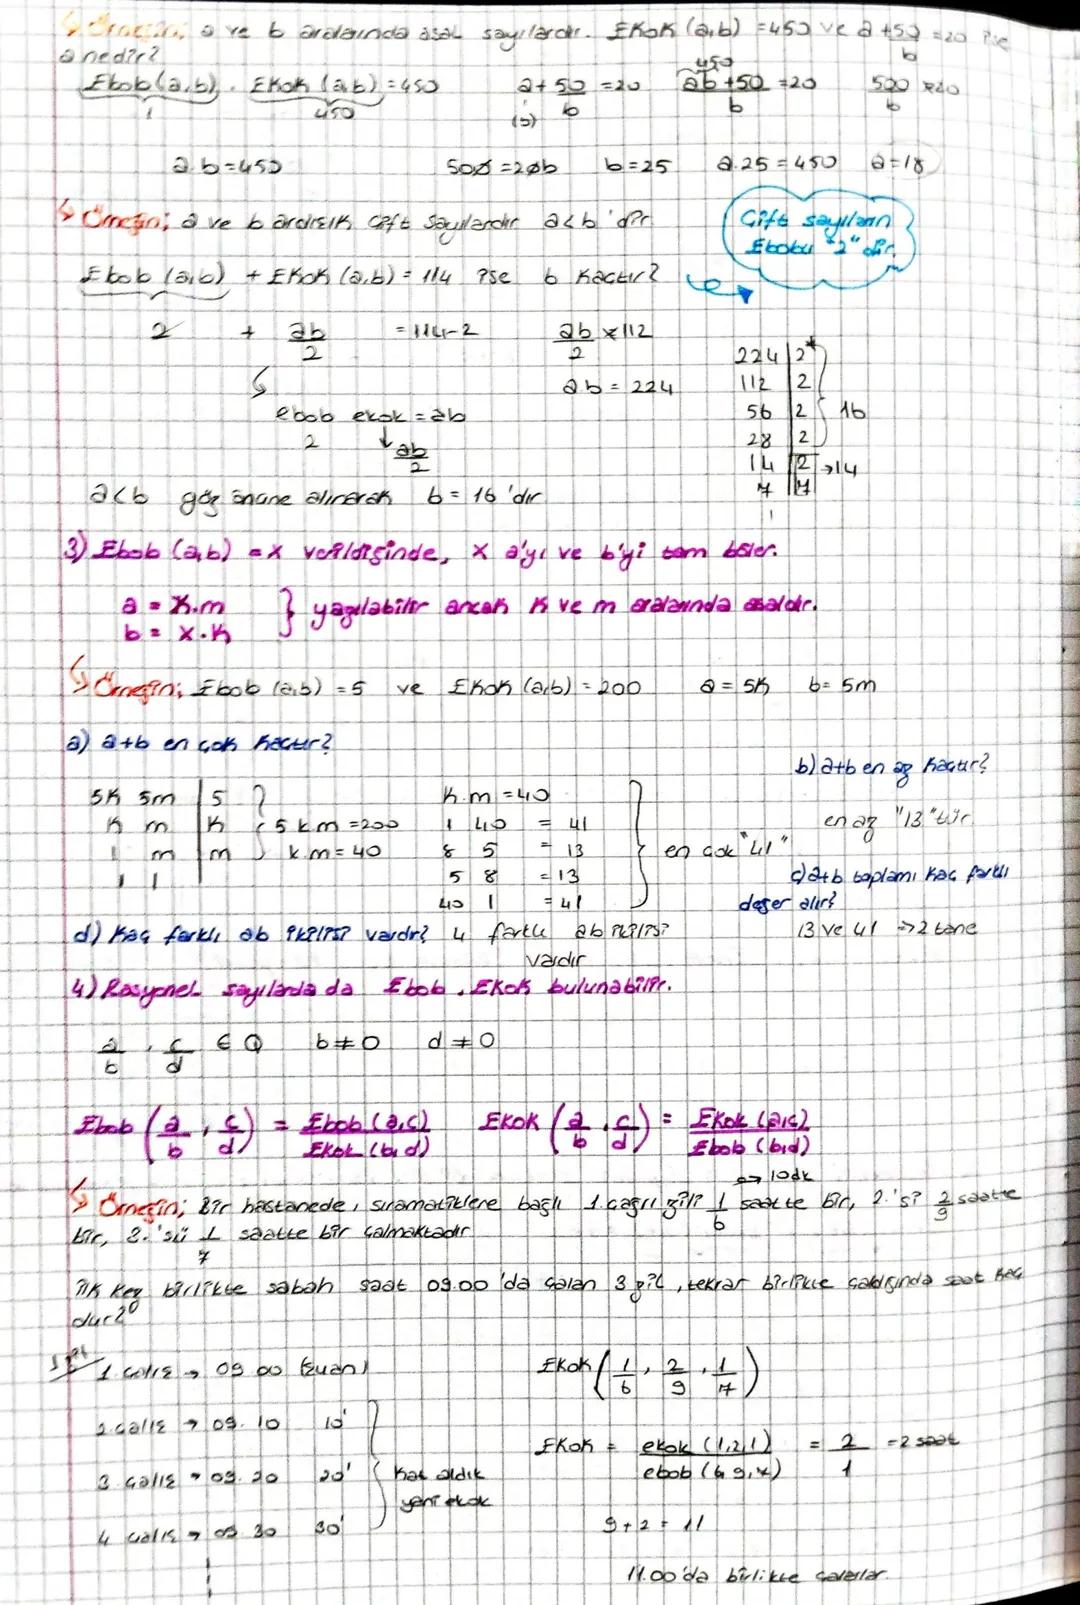 Örneğin; a ve b aralarında asal sayılardır. EKOK (a,b) =450 ve a+50/b =20 ise
a nedir?
Ebob(a,b) . EKOK (a,b) = 450
1 450
a+50/b =20
(b)
450
ab+50/b =20
500/b =20
a.b=450 500=20b b=25 a.25=450 a=18
Örneğin; a ve b ardışık çift sayılardır a<b 'dir.
Çift sayıların
Ebobu "2" dir.
Ebob (a,b) + EKOK (a,b) = 114 ise b kaçtır?
2 + ab/2 = 114-2 ab/2 = 112
ab = 224
ebob ekok = ab
2 ab/2
224 2
112 2
56 2 16
28 2
14 2 →14
7 7
1
a<b göz önüne alınarak b = 16 'dır
3) Ebob (a,b) = x verildiğinde, x a'yı ve b'yi tam böler.
a = x.m
b = x.k
} yazılabilir ancak k ve m aralarında asaldır.
Örneğin; Ebob (a,b) =5 ve EKOK (a,b) = 200 a = 5k b= 5m
a) a+b en çok kaçtır?
b) a+b en az kaçtır?
5k 5m 5
k m k 5 k.m =200
1 m m k.m = 40
1 1
k.m =40
1 40 = 41
8 5 = 13
5 8 = 13
40 1 = 41
en çok "41"
en az "13"tür.
c) a+b toplamı kaç farklı
değer alır?
13 ve 41 → 2 tane
d) Kaç farklı ab ikilisi vardır? 4 farklı ab ikilisi
vardır
4) Rasyonel sayılarda da Ebob, EKOK bulunabilir.
a/b , c/d ∈ Q b≠0 d≠0
Ebob (a/b , c/d) = Ebob (a,c)/Ekok (b,d) EKOK (a/b , c/d) = EKOK (a,c)/Ebob (b,d)
→ 10dk
Örneğin; Bir hastanede, sıramatiklere bağlı 1.çağrı zili 1/6 saatte bir, 2.'si 2/9 saatte
bir, 3.'sü 1/7 saatte bir çalmaktadır
İlk kez birlikte sabah saat 09.00 'da çalan 3 zil, tekrar birlikte çaldığında saat kaç
dur?
1.çalış → 09 00
2.çalış → 09.10 10'
3.çalış → 09.20 20'
4 çalış → 09 30 30'
kat aldık
yani ekok
EKOK (1/6 , 2/9 , 1/7)
EKOK = ekok (1,2,1)/ebob (6,9,7) = 2/1 =2 saat
9+2 = 11
11.00'da birlikte çalarlar.